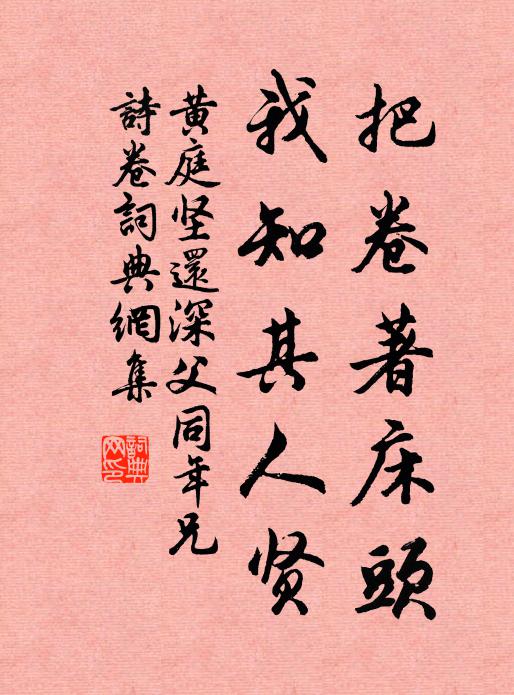 把卷著床頭
我知其人贤
黄庭坚還深父同年兄
詩卷詞典網集
詞典网印